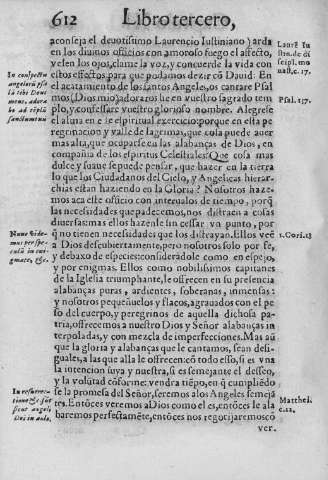 612 Libro tercero,
aconseja el deuotissimo Laurencio Iustiniano) arda
en los diuinos oficios con amoroso fuego el affecto,
velen los ojos, clame la voz, y concuerde la vida con
estos effectos, para que podamos dezir cõ Dauid. En
el acatamiento de los santos Angeles, os cantare Psal
mos, (Dios mio) adorar os he en vuestro sagrado tem
plo, y confessare vuestro glorioso nombre. Alegrese
el alma en este spiritual exercicio: porque en esta pe
regrinacion y valle de lagrimas, que cosa puede auer
mas alta, que ocuparse en las alabanças de Dios, en
compañia de los espiritus Celestiales: Que cosa mas
dulce y suaue se puede pensar, que hazer en la tierra
lo que los Ciudadanos del Cielo, y Angelicas hierar-
chias estan haziendo en la Gloria? Nosotros haze-
mos aca este officio con interualos de tiempo, porq̃
las necesidades que padecemos, nos distraen a cosas
diuersas: mas ellos hazenle sin cessar vn punto, por
q̃ no tienen necesidades que los distrayan. Ellos veẽ
a Dios descubiertamente, pero nosotros solo por fe,
y debaxo de especies: considerãdole como en espejo,
y por enigmas. Ellos como nobilissimos capitanes
de la Iglesia triumphante, le ofrecen en su presencia
alabanças puras, ardientes, soberanas, inmensas:
y nosotros pequeñuelos y flacos, agrauados con el pe
so del cuerpo, y peregrinos de aquella dichosa pa-
tria, ofrecemos a nuestro Dios y Señor alabanças in
terpoladas, y con mezcla de imperfecciones. Mas aũ
que la gloria y alabanças que le cantamos, sean desi-
guales, a las que alla le ofrecen: cõ todo esso, si es vna
la intencion suya y nuestra, si es semejante el desseo,
y la volũtad cõforme: vendra tiẽpo, en q̃ cumpliẽdo
se la promesa del Señor, seremos a los Angeles semejã
tes. Entõces veremos a Dios como el es, entõces le ala
baremos perfectamẽte, entõces nos regozijaremos cõ
ver.
In conspectu
angelorũ psa
lã tibi Deus
meus, adora
bo ad tẽplũ
sanctum tuũ
Nunc vide-
mus per spe-
culũ in eni-
gmate, &c.
In resurrec-
tione &c. sũt
sicut angeli
Dei in cælo.
Laurẽ Iu
stin. de di
scipl. mo
nast. c. 17.
Psal. 137.
1. Cori. 13
Matthei.
c. 22.